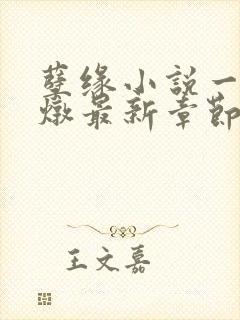 孽缘小説一
燉最新章節
王文嘉